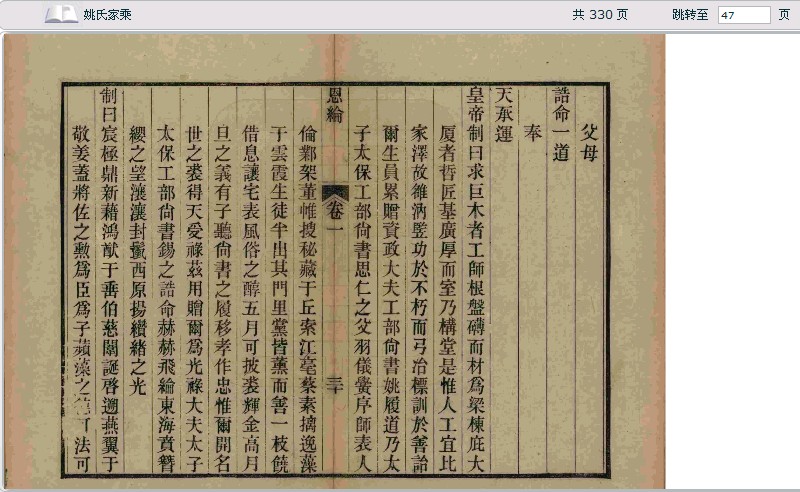 姚氏家乘
共 330 页
跳转至 47 页
父母
誥命一道
奉
天承運
皇帝制曰求巨木者工師根盤礴而材爲梁棟庇大
厦者哲匠基廣厚而室乃構堂是惟人工宜比
家澤故雖汭墍功於不朽而弓冶標訓於善詒
爾生員累贈資政大夫工部尚書姚履道乃太
子太保工部尚書思仁之父羽儀黌序師表人
恩綸
卷一
三十
倫鄴架董帷搜秘藏于丘索江毫蔡素摛逸藻
于雲霞生徒半出其門里黨皆薰而善一枝饒
借息讓宅表風俗之醇五月可披裘輝金高月
旦之義有子聽尚書之履移孝作忠惟爾開名
世之裘得天受祿茲用贈爾爲光祿大夫太子
太保工部尚書錫之誥命赫赫飛綸東海賁簪
纓之望瀼瀼封鬣西原揚纘緒之光
制曰宸極鼎新藉鴻猷于垂伯慈闈誕啓遡燕翼于
敬姜蓋將佐之勲爲臣爲子蘋藻之可法可